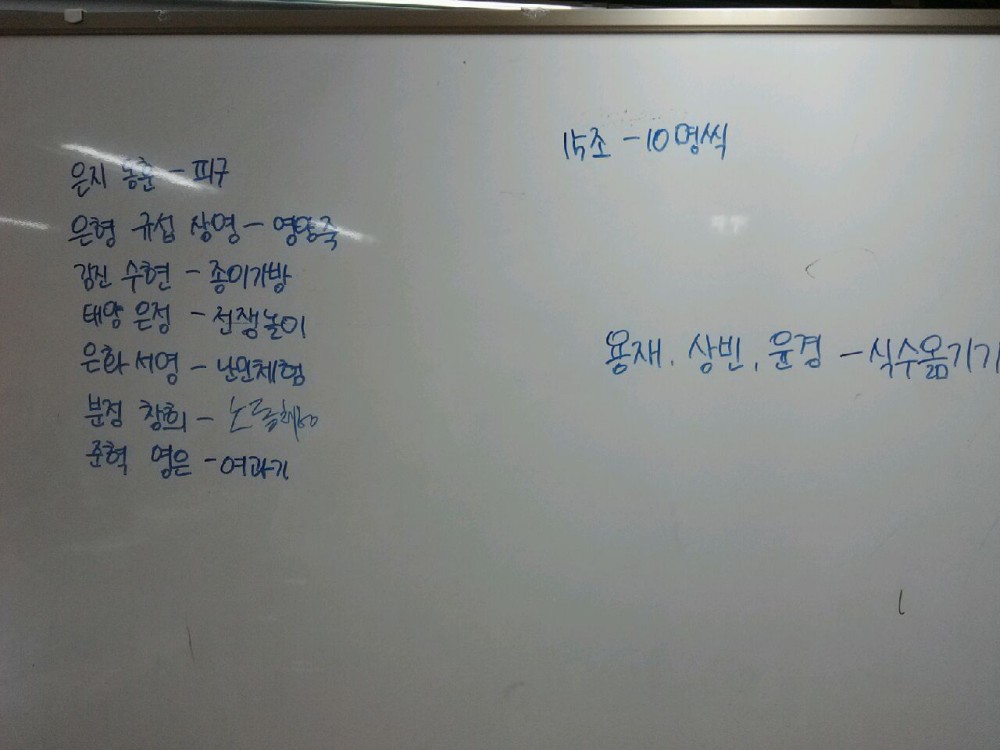 은지 동훈 - 피구
은형 규섭 상영 - 영양죽
김진 수현 - 종이가방
태양 은정 - 전쟁놀이
은화 서영 - 난민체험
분정 창희 -
준혁 영은 - 여과기
15조 - 10명씩
용재. 상빈, 윤경 - 식수옮기기